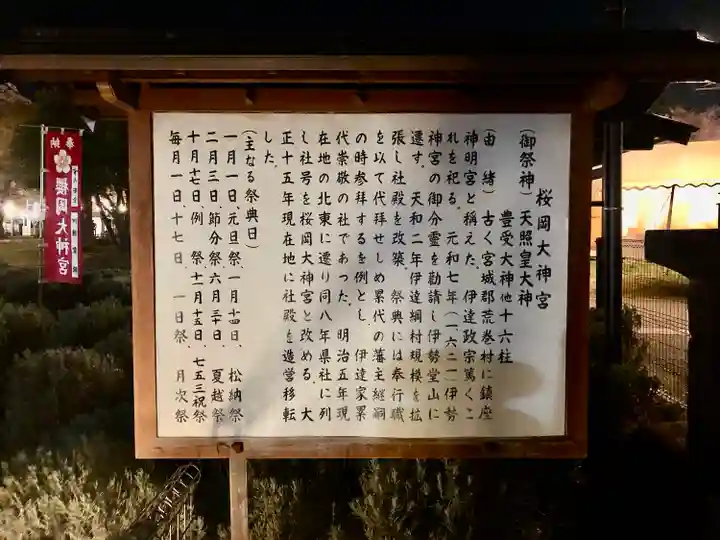 桜岡大神宮
(御祭神)天照皇大神
豊受大神他十六柱
(由緒)古く宮城郡荒巻村に鎮座
神明宮と称えた。伊達政宗篤くこ
れを祀る。元和七年(一六二一)伊勢
神宮の御分霊を勧請し伊勢堂山に
遷す。天和二年伊達綱村規模を拡
張し社殿を改築。祭典には奉行職
を以て代拝せしめ累代の藩主継嗣
の時参拝するを例とし、伊達家累
代崇敬の社であった。明治五年現
在地の北東に遷り同八年県社に列
し社号を桜岡大神宮と改める。大
正十五年現在地に社殿を造営移転
した。
(主なる祭典日)
一月一日、元旦祭 一月十四日、松納祭
二月三日、節分祭 六月三十日、夏越祭
十月十七日、例祭 十一月十五日、七五三祝祭
毎月一日、十七日、一日祭、月次祭
奉納
櫻岡大神宮